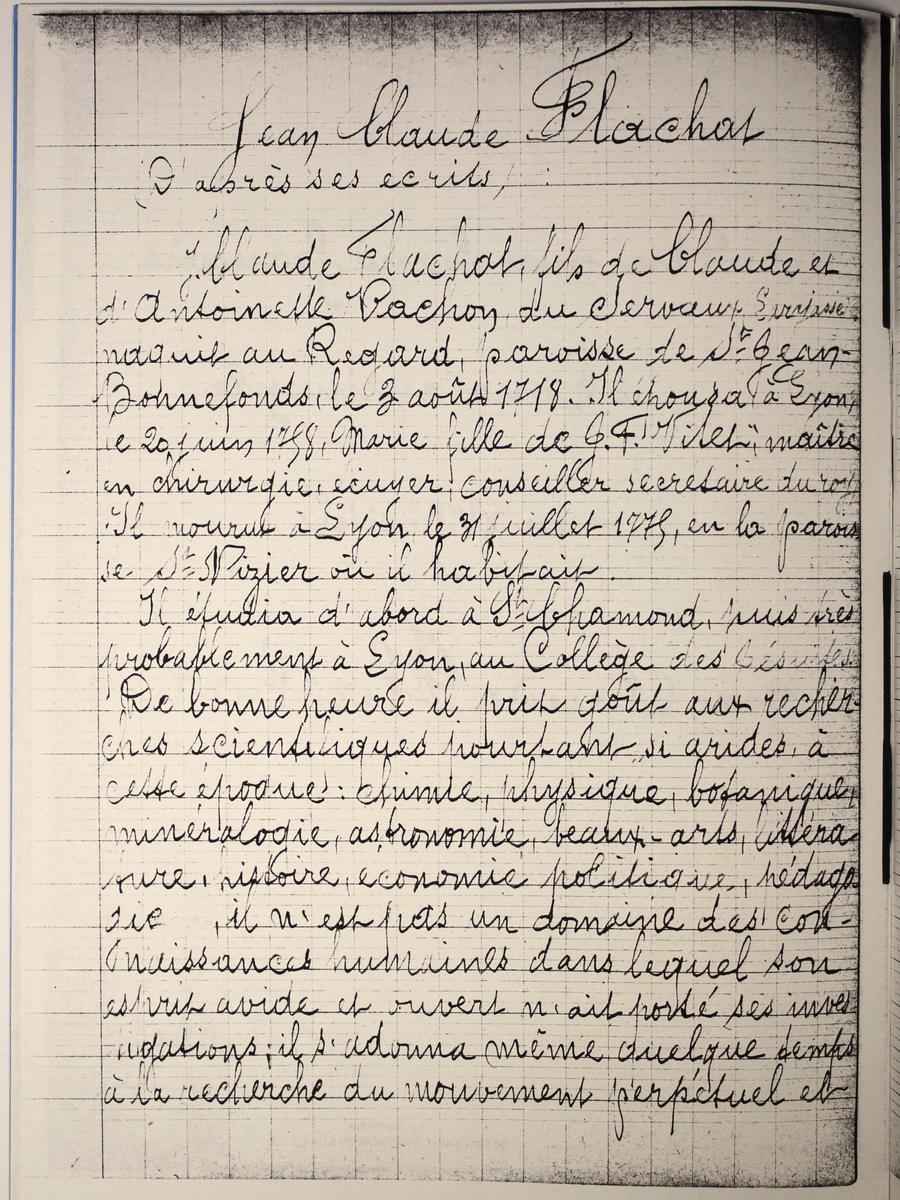 Jean Claude Flachat
(D'après ses écrits)
J. Claude Flachat, fils de Claude et
d'Antoinette Vachon du Servaux
naquit au Regard, paroisse de St Jean-
Bonnefonds, le 3 août 1718. Il épousa à Lyon,
le 20 juin 1758, Marie fille de J. F. Vitet, maître
en chirurgie, écuyer, conseiller secretaire du roy
Il mourut à Lyon le 31 juillet 1775, en la parois
se St Nizier où il habitait.
Il étudia d'abord à St Chamond, puis très
probablement à Lyon, au Collège des Jésuites.
De bonne heure il prit goût aux recher-
ches scientifiques pourtant si arides, à
cette époque : chimie, physique, botanique,
minéralogie, astronomie, beaux-arts, littéra-
ture, histoire, économie politique, pédago
gie, il n'est pas un domaine des con-
naissances humaines dans lequel son
esprit avide et ouvert n'ait porté ses inves
tigations ; il s'adonna même quelque temps
à la recherche du mouvement perpétuel et